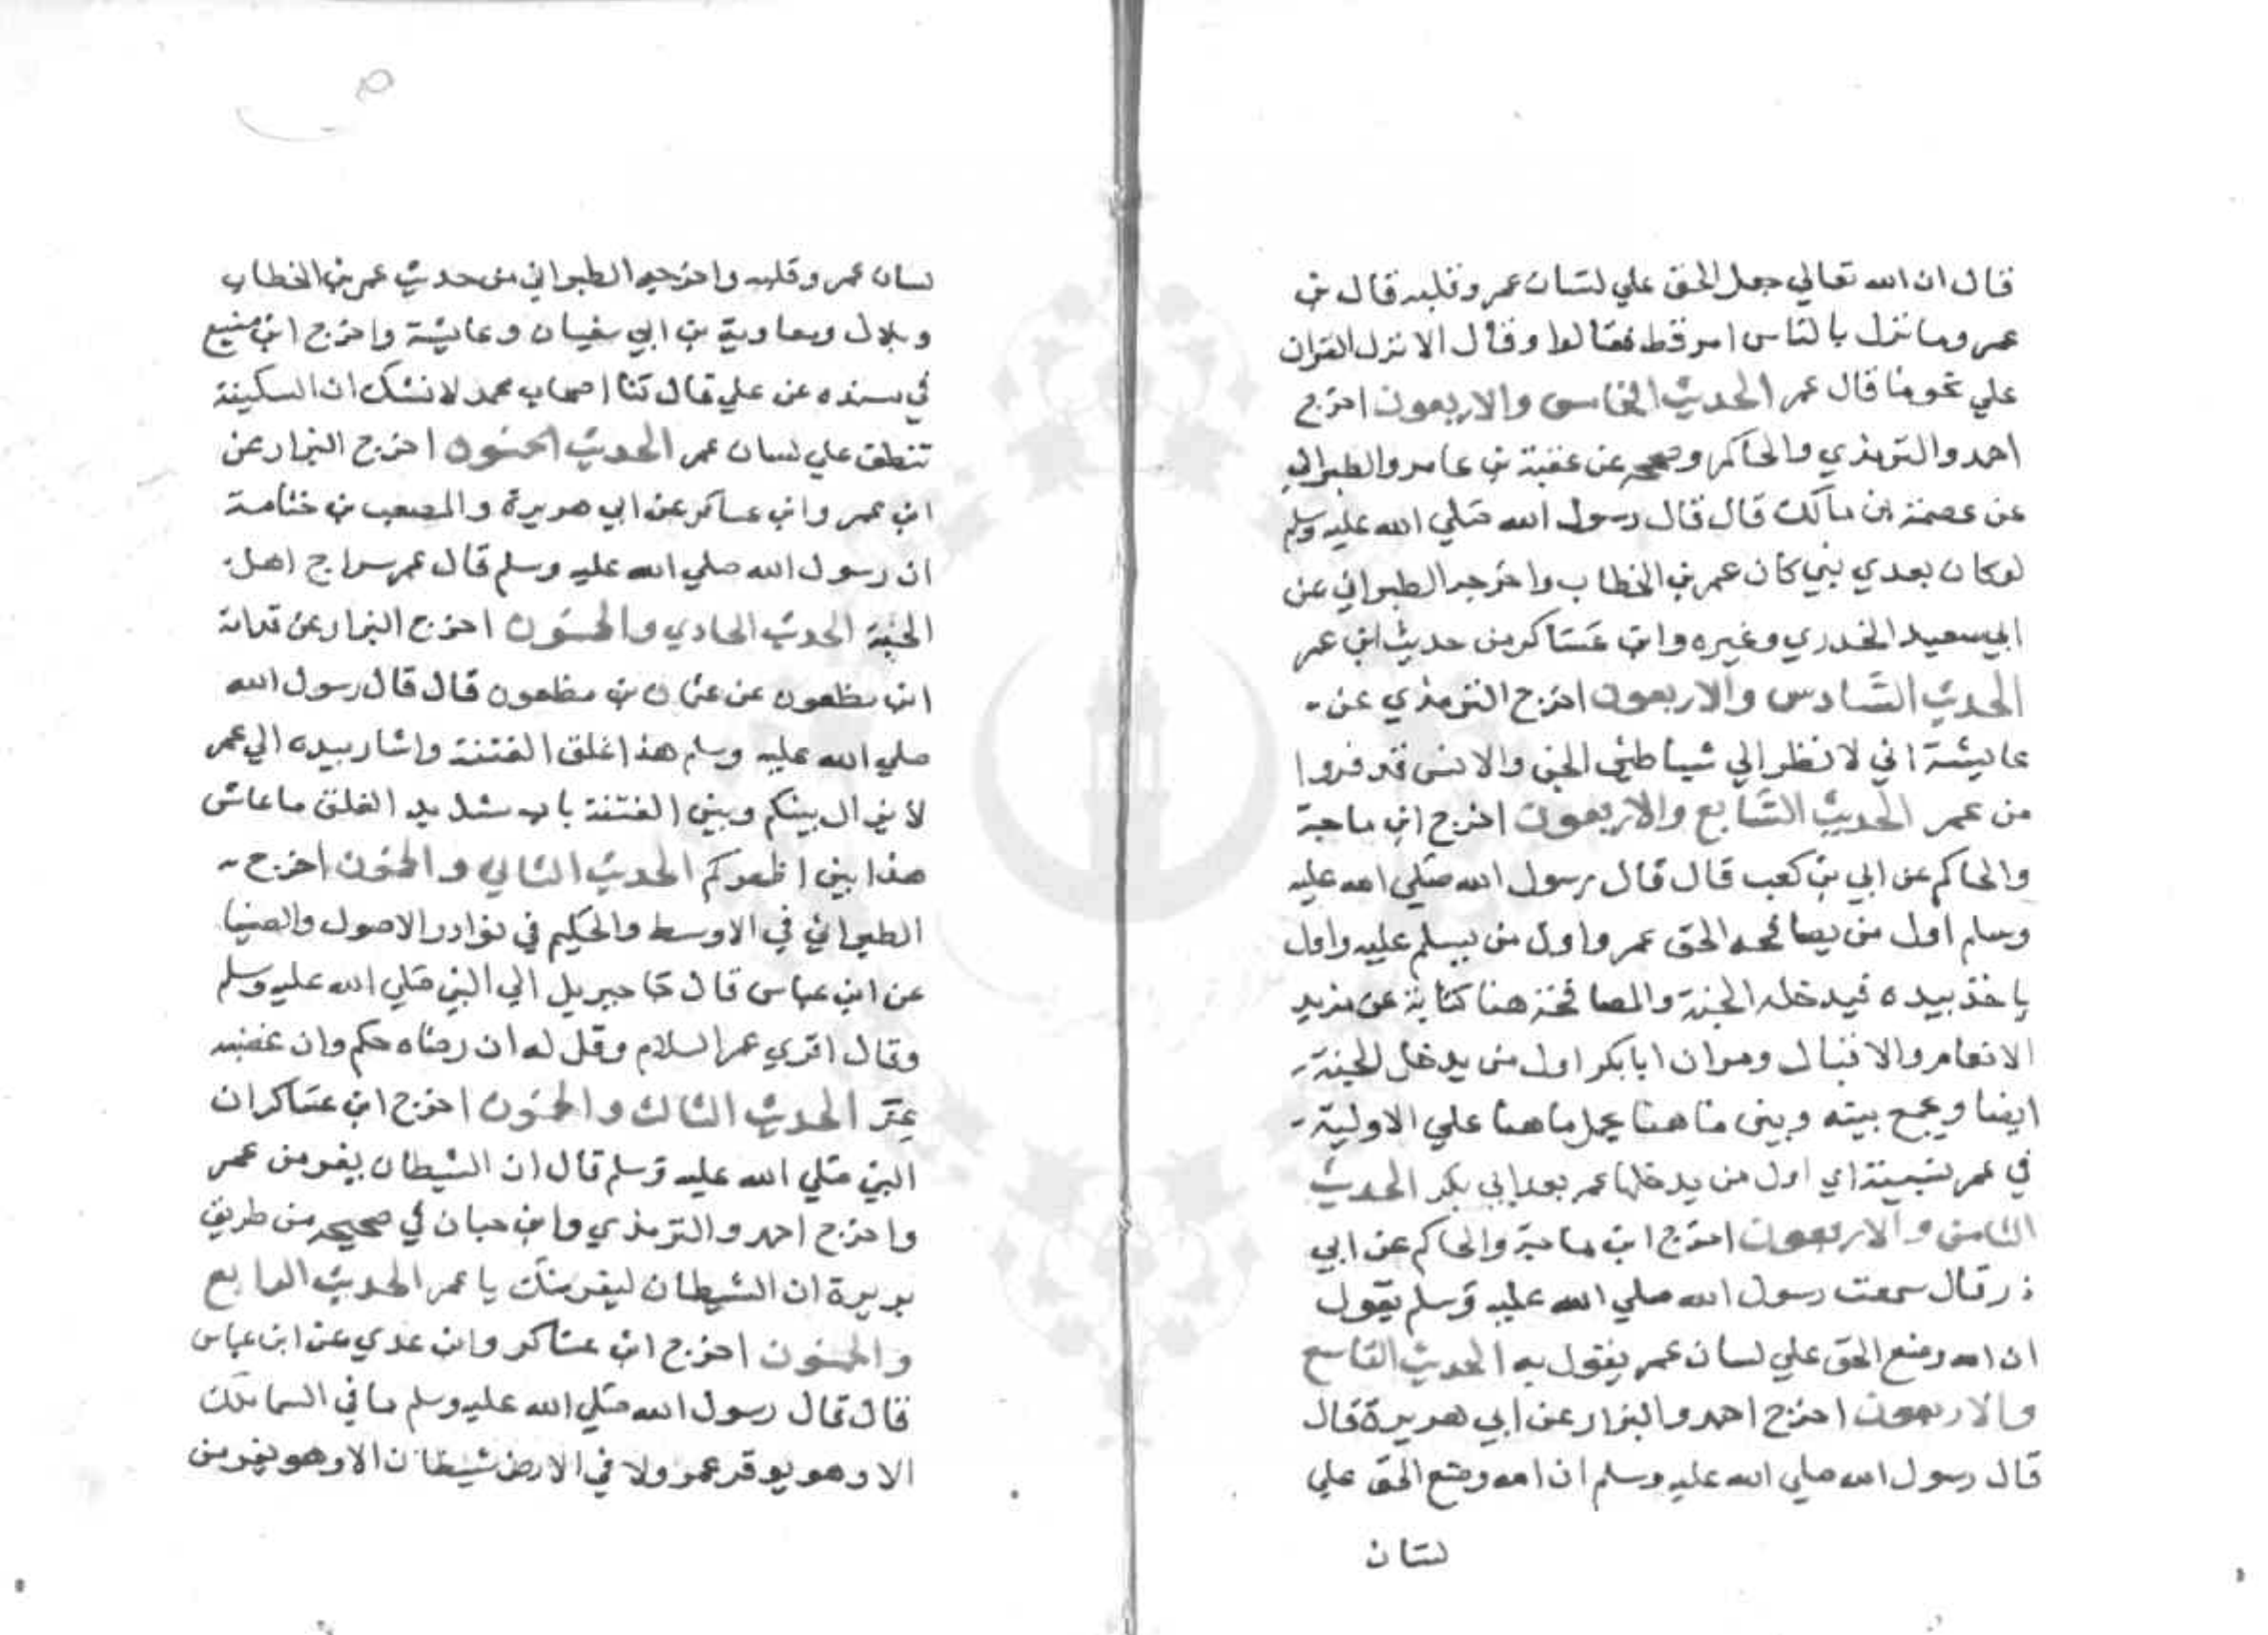 قال ان الله تعالي جعل الحق علي لسان عمر وقلبه قال بن
عمر وما نزل بالناس امر قط فقالوا وقال الا نزل القران
علي نحو ما قال عمر الحديث الخامس والاربعون اخرج
احمد والترمذي والحاكم وصححه عن عقبة بن عامر والطبراني
عن عصمة بن مالك قال قال رسول الله صلي الله عليه وسلم
لو كان بعدي نبي كان عمر بن الخطاب واخرجه الطبراني عن
ابي سعيد الخدري وغيره وابن عساكر من حديث ابن عمر
الحديث السادس والاربعون اخرج الترمذي عن
عايشة اني لانظر الي شياطين الجن والانس قد فروا
من عمر الحديث السابع والاربعون اخرج ابن ماجة
والحاكم عن ابي بن كعب قال قال رسول الله صلي الله عليه
وسلم اول من يصافحه الحق عمر واول من يسلم عليه واول
ياخذ بيده فيدخله الجنة والمصافحة هنا كناية عن مزيد
الانعام والاقبال ومر ان ابا بكر اول من يدخل الجنة
ايضا ويجمع بينه وبين ما هنا يحمل ما هنا علي الاولية
في عمر نسبية اي اول من يدخلها عمر بعد ابي بكر الحديث
الثامن والاربعون اخرج ابن ماجة والحاكم عن ابي
ذر قال سمعت رسول الله صلي الله عليه وسلم يقول
ان الله وضع الحق علي لسان عمر يقول به الحديث التاسع
والاربعون اخرج احمد والبزار عن ابي هريرة قال
قال رسول الله صلي الله عليه وسلم ان الله وضع الحق علي
لسان
لسان عمر وقلبه واخرجه الطبراني من حديث عمر بن الخطاب
وبلال ومعاوية بن ابي سفيان وعايشة واخرج ابن منيع
في مسنده عن علي قال كنا اصحاب محمد لا نشك ان السكينة
تنطق علي لسان عمر الحديث الخمسون اخرج البزار عن
ابن عمر وابن عساكر عن ابي هريرة والمصعب بن خثامة
ان رسول الله صلي الله عليه وسلم قال عمر سراج اهل
الجنة الحديث الحادي والخمسون اخرج البزار عن قدامة
ابن مظعون عن عثمان بن مظعون قال قال رسول الله
صلي الله عليه وسلم هذا غلق الفتنة واشار بيده الي عمر
لا يزال بينكم وبين الفتنة باب شديد الغلق ما عاش
هذا بين اظهركم الحديث الثاني والخمسون اخرج
الطبراني في الاوسط والحكيم في نوادر الاصول والضيا
عن ابن عباس قال جا جبريل الي النبي صلي الله عليه وسلم
وقال اقري عمر السلام وقل له ان رضاه حكم وان غضبه
عز الحديث الثالث والخمسون اخرج ابن عساكر ان
النبي صلي الله عليه وسلم قال ان الشيطان يفر من عمر
واخرج احمد والترمذي وابن حبان في صحيحه من طريق
بريرة ان الشيطان ليفر منك يا عمر الحديث الرابع
والخمسون اخرج ابن عساكر وابن عدي عن ابن عباس
قال قال رسول الله صلي الله عليه وسلم ما في السما ملك
الا وهو يوقر عمر ولا في الارض شيطان الا وهو يفر من